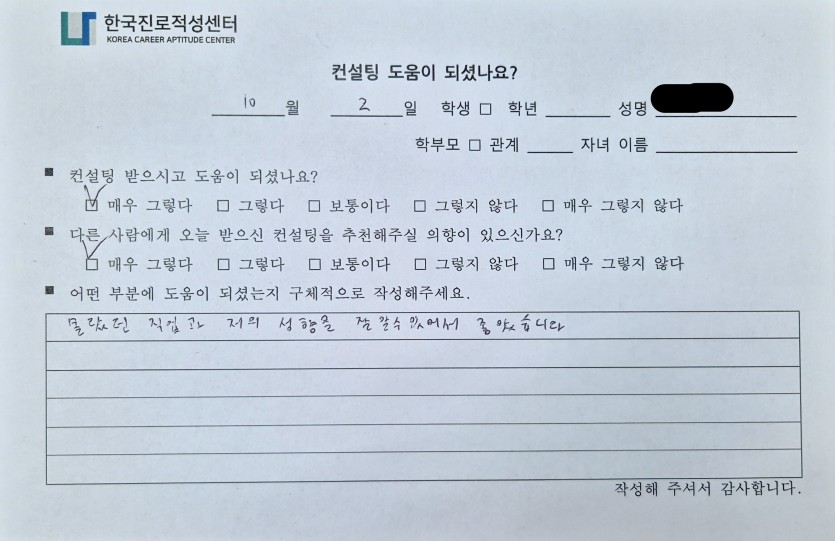 한국진로적성센터
KOREA CAREER APTITUDE CENTER
컨설팅 도움이 되셨나요?
10 월 2 일 학생 □ 학년 성명
학부모 □ 관계 자녀 이름
■ 컨설팅 받으시고 도움이 되셨나요?
☑ 매우 그렇다 □ 그렇다 □ 보통이다 □ 그렇지 않다 □ 매우 그렇지 않다
■ 다른 사람에게 오늘 받으신 컨설팅을 추천해주실 의향이 있으신가요?
☑ 매우 그렇다 □ 그렇다 □ 보통이다 □ 그렇지 않다 □ 매우 그렇지 않다
■ 어떤 부분에 도움이 되셨는지 구체적으로 작성해주세요.
몰랐던 직업과 저의 성향을 잘 알수 있어서 좋았습니다
작성해 주셔서 감사합니다.